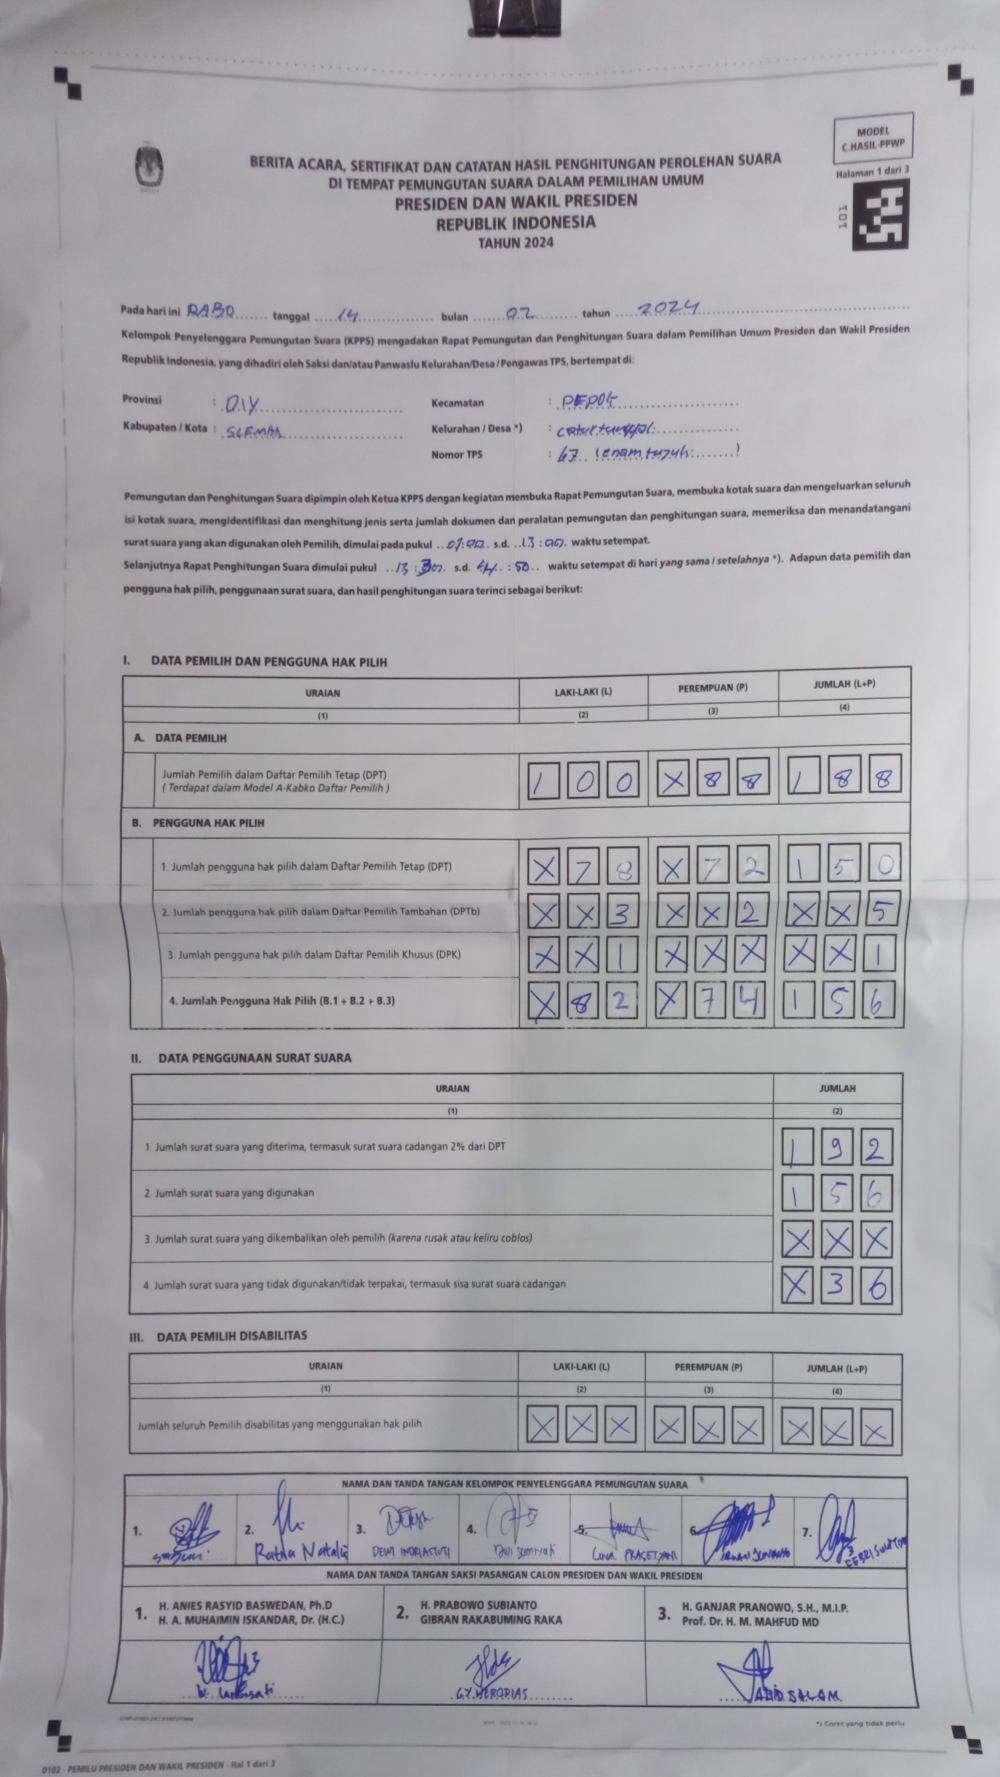 MODEL
C.HASIL-PPWP
Halaman 1 dari 3
101
BERITA ACARA, SERTIFIKAT DAN CATATAN HASIL PENGHITUNGAN PEROLEHAN SUARA
DI TEMPAT PEMUNGUTAN SUARA DALAM PEMILIHAN UMUM
PRESIDEN DAN WAKIL PRESIDEN
REPUBLIK INDONESIA
TAHUN 2024
Pada hari ini RABO tanggal 14 bulan 02 tahun 2024
Kelompok Penyelenggara Pemungutan Suara (KPPS) mengadakan Rapat Pemungutan dan Penghitungan Suara dalam Pemilihan Umum Presiden dan Wakil Presiden
Republik Indonesia, yang dihadiri oleh Saksi dan/atau Panwaslu Kelurahan/Desa / Pengawas TPS, bertempat di:
Provinsi : DIY Kecamatan : DEPOK
Kabupaten / Kota : SLEMAN Kelurahan / Desa *) : caturtunggal
Nomor TPS : 67 (enam tujuh)
Pemungutan dan Penghitungan Suara dipimpin oleh Ketua KPPS dengan kegiatan membuka Rapat Pemungutan Suara, membuka kotak suara dan mengeluarkan seluruh
isi kotak suara, mengidentifikasi dan menghitung jenis serta jumlah dokumen dan peralatan pemungutan dan penghitungan suara, memeriksa dan menandatangani
surat suara yang akan digunakan oleh Pemilih, dimulai pada pukul 07:00 s.d. 13:00 waktu setempat.
Selanjutnya Rapat Penghitungan Suara dimulai pukul 13:30 s.d. :50 waktu setempat di hari yang sama / setelahnya *). Adapun data pemilih dan
pengguna hak pilih, penggunaan surat suara, dan hasil penghitungan suara terinci sebagai berikut:
I. DATA PEMILIH DAN PENGGUNA HAK PILIH
URAIAN LAKI-LAKI (L) PEREMPUAN (P) JUMLAH (L+P)
(1) (2) (3) (4)
A. DATA PEMILIH
Jumlah Pemilih dalam Daftar Pemilih Tetap (DPT) 1 0 0 X 8 8 1 8 8
( Terdapat dalam Model A-Kabko Daftar Pemilih )
B. PENGGUNA HAK PILIH
1. Jumlah pengguna hak pilih dalam Daftar Pemilih Tetap (DPT) X 7 8 X 7 2 1 5 0
2. Jumlah pengguna hak pilih dalam Daftar Pemilih Tambahan (DPTb) X X 3 X X 2 X X 5
3. Jumlah pengguna hak pilih dalam Daftar Pemilih Khusus (DPK) X X 1 X X X X X 1
4. Jumlah Pengguna Hak Pilih (B.1 + B.2 + B.3) X 8 2 X 7 4 1 5 6
II. DATA PENGGUNAAN SURAT SUARA
URAIAN JUMLAH
(1) (2)
1. Jumlah surat suara yang diterima, termasuk surat suara cadangan 2% dari DPT 1 9 2
2. Jumlah surat suara yang digunakan 1 5 6
3. Jumlah surat suara yang dikembalikan oleh pemilih (karena rusak atau keliru coblos) X X X
4. Jumlah surat suara yang tidak digunakan/tidak terpakai, termasuk sisa surat suara cadangan X 3 6
III. DATA PEMILIH DISABILITAS
URAIAN LAKI-LAKI (L) PEREMPUAN (P) JUMLAH (L+P)
(1) (2) (3) (4)
Jumlah seluruh Pemilih disabilitas yang menggunakan hak pilih X X X X X X X X X
NAMA DAN TANDA TANGAN KELOMPOK PENYELENGGARA PEMUNGUTAN SUARA
1. 2. 3. 4. 5. 6. 7.
Ratna Natalia DEWI INDRIASTUTI LINA PRASETYANI
NAMA DAN TANDA TANGAN SAKSI PASANGAN CALON PRESIDEN DAN WAKIL PRESIDEN
1. H. ANIES RASYID BASWEDAN, Ph.D
H. A. MUHAIMIN ISKANDAR, Dr. (H.C.)
2. H. PRABOWO SUBIANTO
GIBRAN RAKABUMING RAKA
3. H. GANJAR PRANOWO, S.H., M.I.P.
Prof. Dr. H. M. MAHFUD MD
G.Y. HERODIAS
ABID SALAM
*) Coret yang tidak perlu
0102 - PEMILU PRESIDEN DAN WAKIL PRESIDEN - Hal 1 dari 3